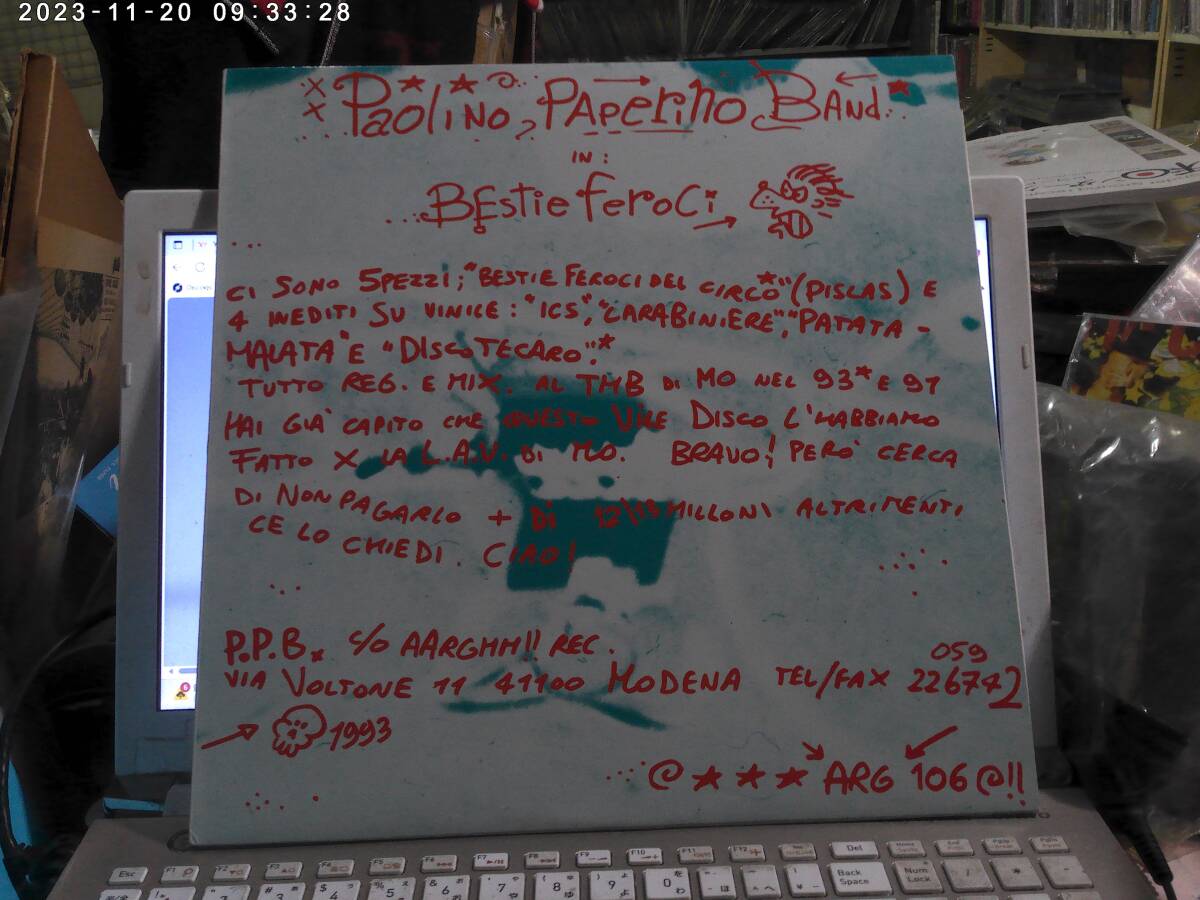 2023-11-20 09:33:28
Paolino Paperino Band
in:
Bestie feroci
Ci sono 5 pezzi; "Bestie feroci del circo*" (Pislas) e
4 inediti su vinile: "Ics", "Carabiniere", "Patata-
malata" e "Discotecaro".*
Tutto reg. e mix. al TMB di MO nel 93* e 91
Hai già capito che questo vile disco l'habbiamo
fatto x la L.A.V. di MO. Bravo! Però cerca
di non pagarlo + di 12\13 milloni altrimenti
ce lo chiedi. Ciao!
P.P.B. c/o AARGHH!! REC.
059
Via Voltone 11 41100 Modena Tel/Fax 226742
1993
@ ★ ★ ★ ARG 106 @!!
Esc F1 F2 F3 F4 F5 F6 F7 F8 F9 F10 F11 F12 Del
Back Space
Num Lock